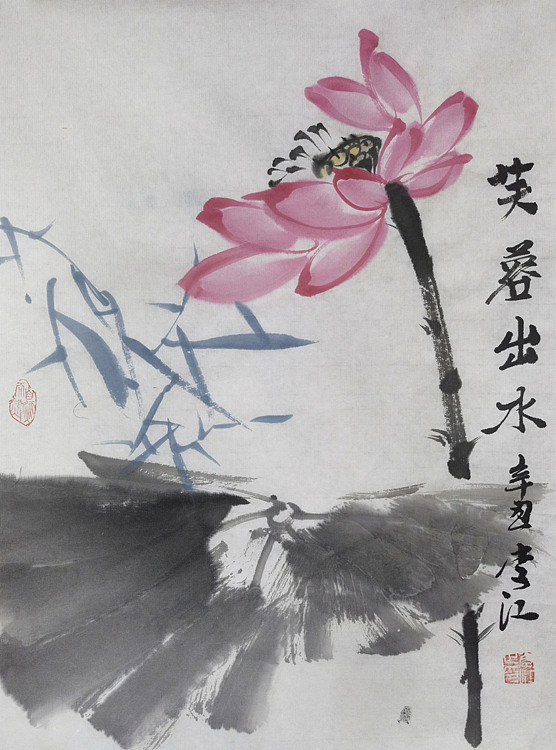 芙蓉出水 辛丑李江